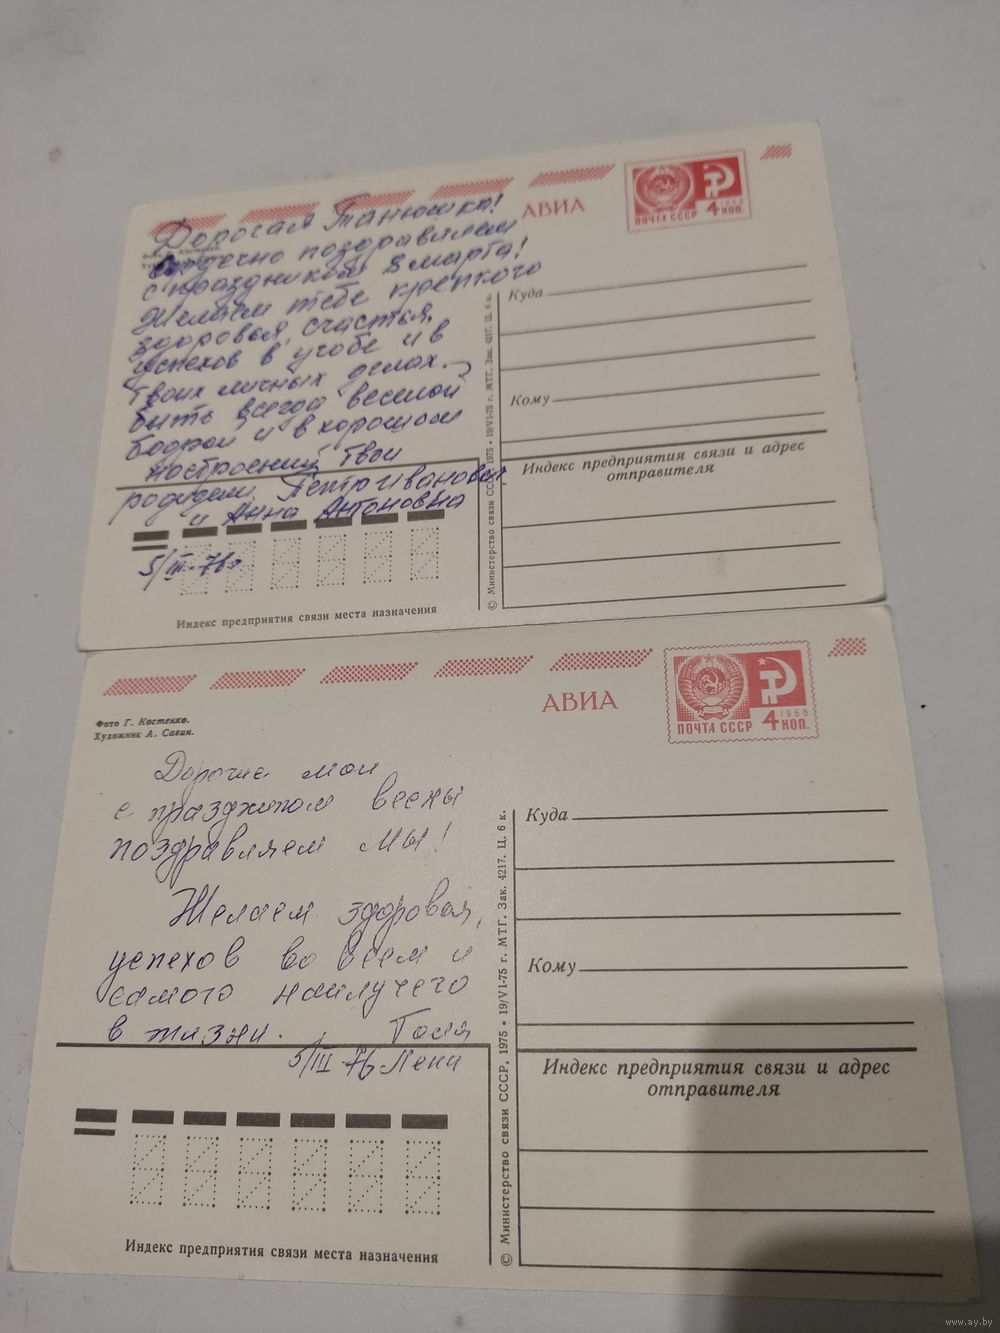 АВИА
ПОЧТА СССР 4 1966 КОП.
Фото Г. Костенко.
Дорогая Танюшка!
Сердечно поздравляем
с праздником 8 марта!
Желаем тебе крепкого
здоровья, счастья,
успехов в учебе и в
твоих личных делах.
быть всегда веселой
бодрой и в хорошом
настроении, твои
Петр Иванович
и Анна Антоновна
5/III-76г
Куда
Кому
Индекс предприятия связи и адрес
отправителя
Индекс предприятия связи места назначения
© Министерство связи СССР, 1975 • 19/VI-75 г. МТГ. Зак. 4217. Ц. 6 к.
АВИА
ПОЧТА СССР 4 1966 КОП.
Фото Г. Костенко.
Художник А. Савин.
Дорогие мои
с праздником весны
поздравляем мы!
Желаем здоровья,
успехов во всем и
самого наилучего
в жизни. Галя
5/III-76 Лени
Куда
Кому
Индекс предприятия связи и адрес
отправителя
Индекс предприятия связи места назначения
© Министерство связи СССР, 1975 • 19/VI-75 г. МТГ. Зак. 4217. Ц. 6 к.
www.ay.by